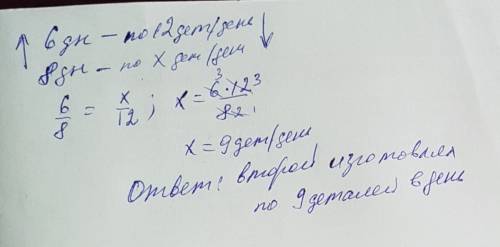 6 дн – по 12 дет/день
8 дн – по х дет/день
6/8 = x/12 ; x = 6³·12³/8₂₁
x = 9 дет/день
Ответ: второй изготовлял
по 9 деталей в день